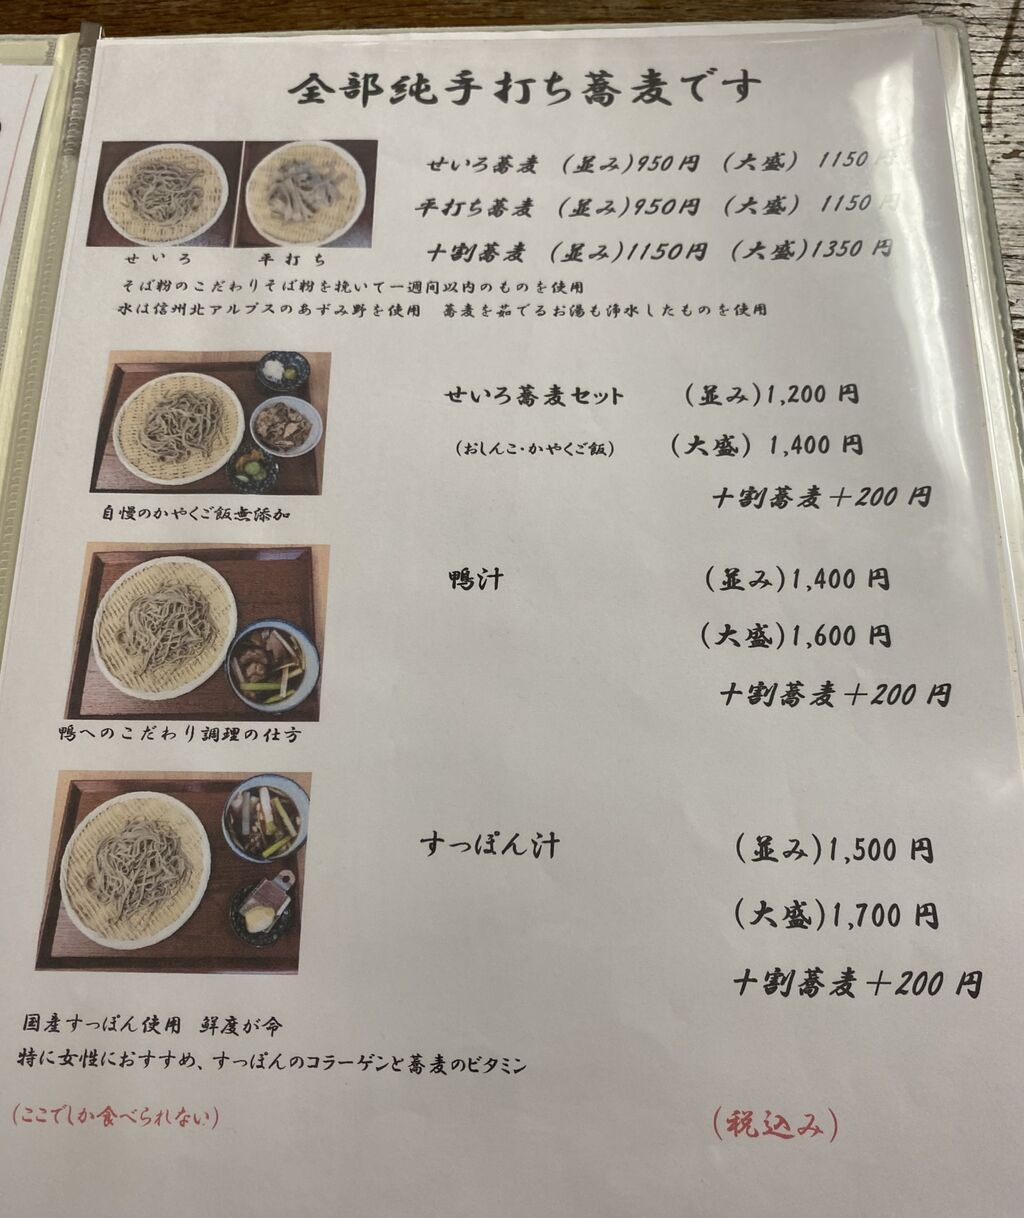 全部純手打ち蕎麦です
せいろ蕎麦 (並み)950円 (大盛) 1150円
平打ち蕎麦 (並み)950円 (大盛) 1150円
十割蕎麦 (並み)1150円 (大盛)1350円
せいろ 平打ち
そば粉のこだわりそば粉を挽いて一週間以内のものを使用
水は信州北アルプスのあずみ野を使用 蕎麦を茹でるお湯も浄水したものを使用
せいろ蕎麦セット (並み)1,200円
(おしんこ・かやくご飯) (大盛) 1,400円
十割蕎麦+200円
自慢のかやくご飯無添加
鴨汁 (並み)1,400円
(大盛)1,600円
十割蕎麦+200円
鴨へのこだわり調理の仕方
すっぽん汁 (並み)1,500円
(大盛)1,700円
十割蕎麦+200円
国産すっぽん使用 鮮度が命
特に女性におすすめ、すっぽんのコラーゲンと蕎麦のビタミン
(ここでしか食べられない) (税込み)